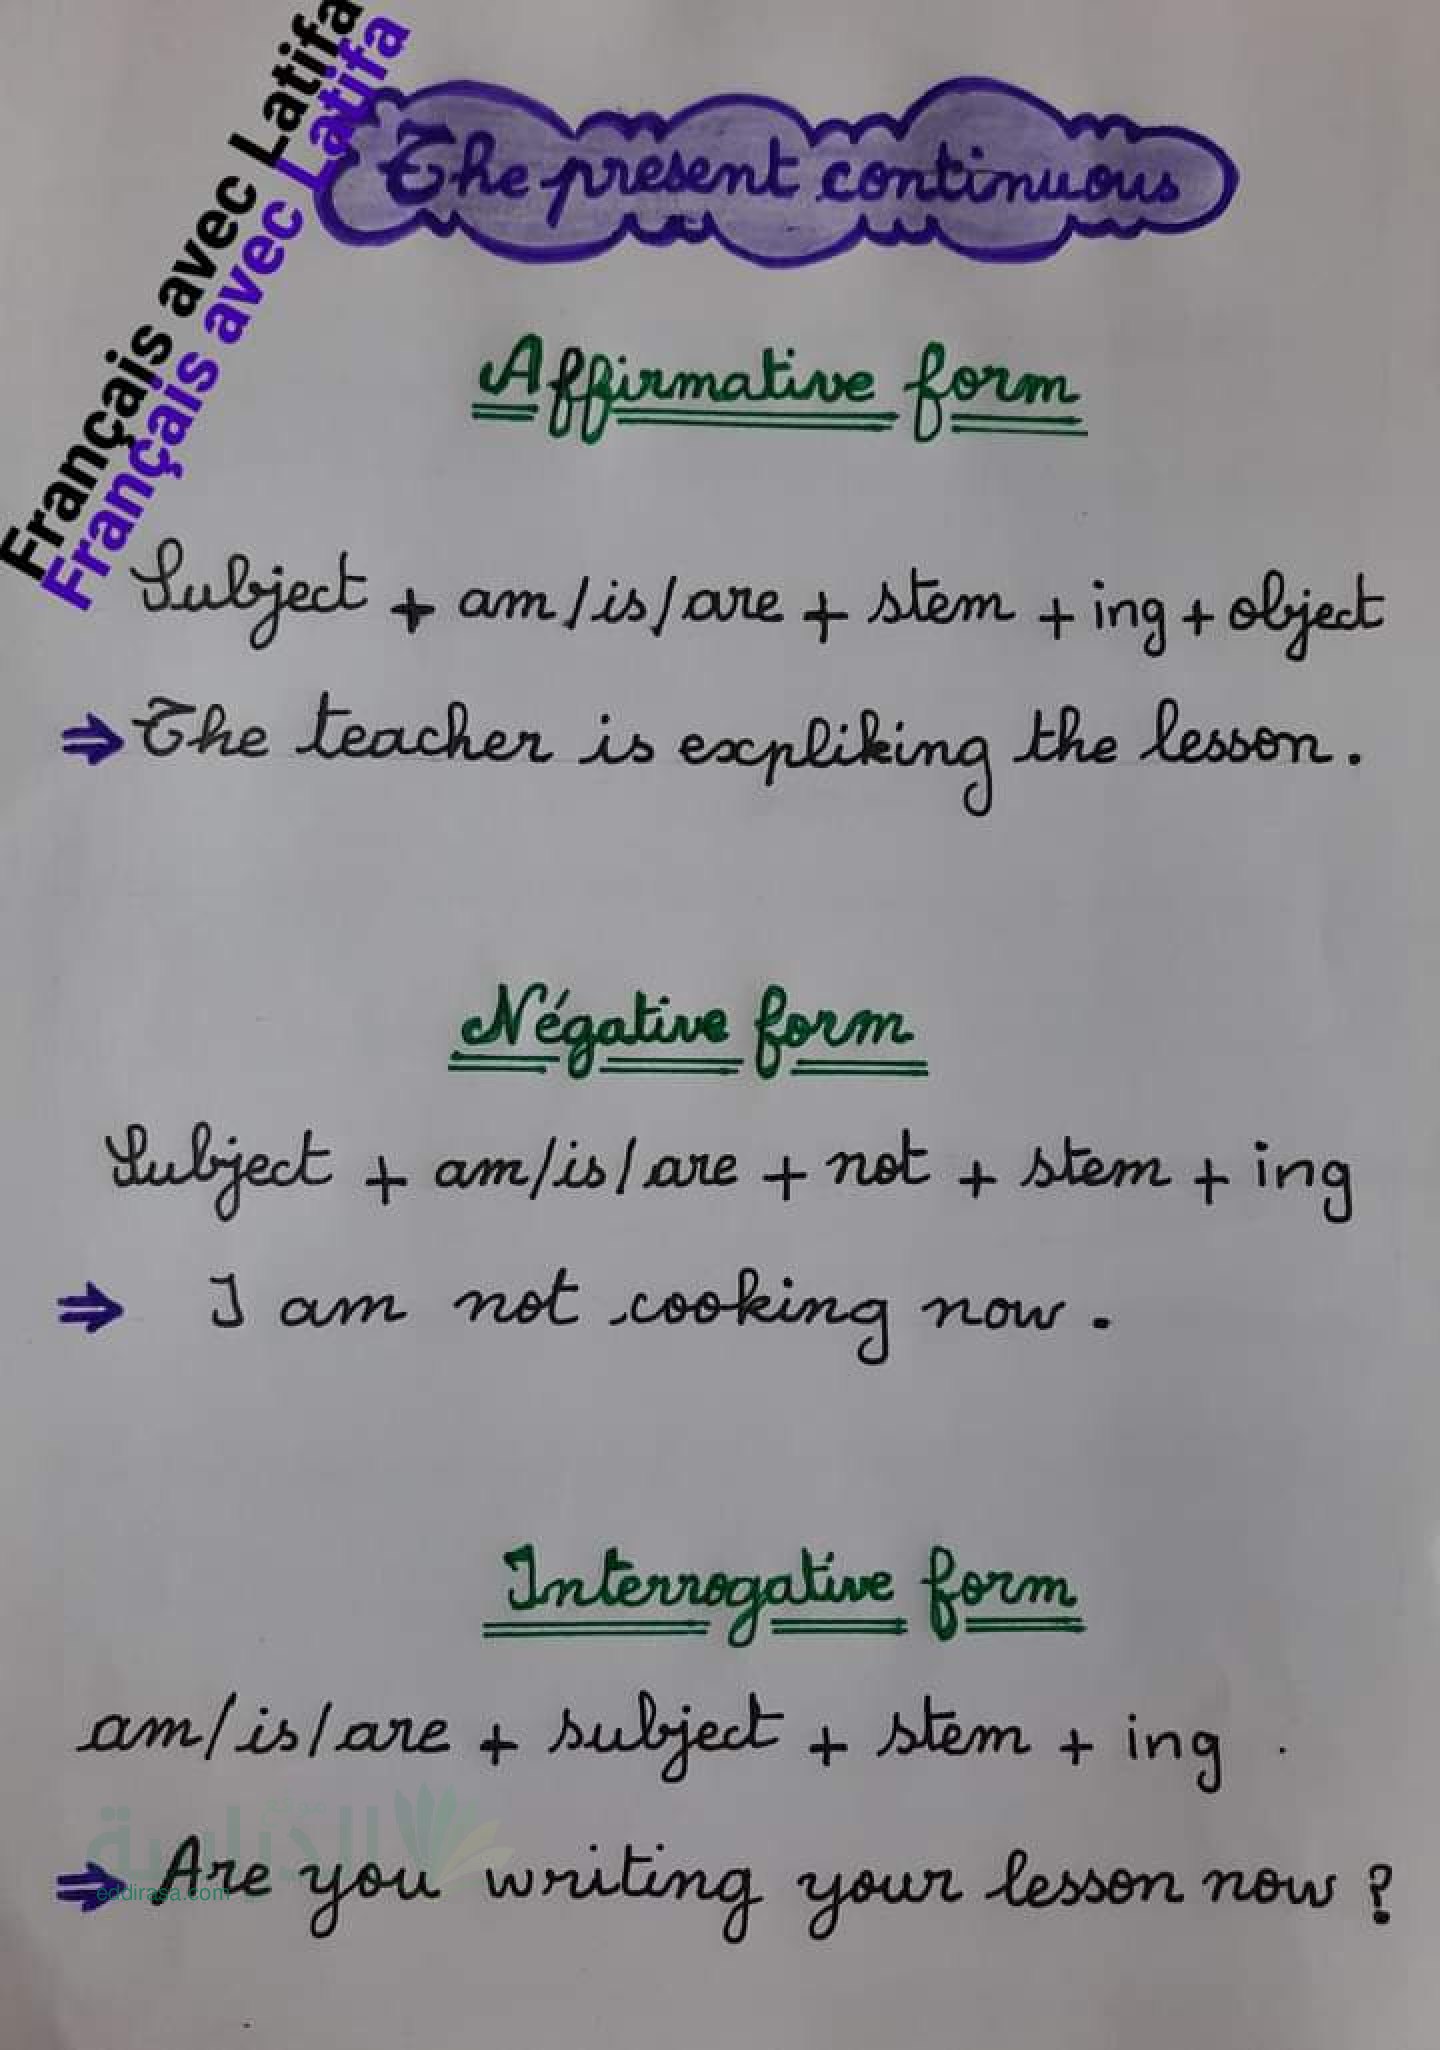 Français avec Latifa
Français avec Latifa
The present continuous
Affirmative form
Subject + am/is/are + stem + ing + object
⇒ The teacher is expliking the lesson.
Négative form
Subject + am/is/are + not + stem + ing
⇒ I am not cooking now.
Interrogative form
am/is/are + subject + stem + ing .
موقع
الدراسة
eddirasa.com
⇒ Are you writing your lesson now ?